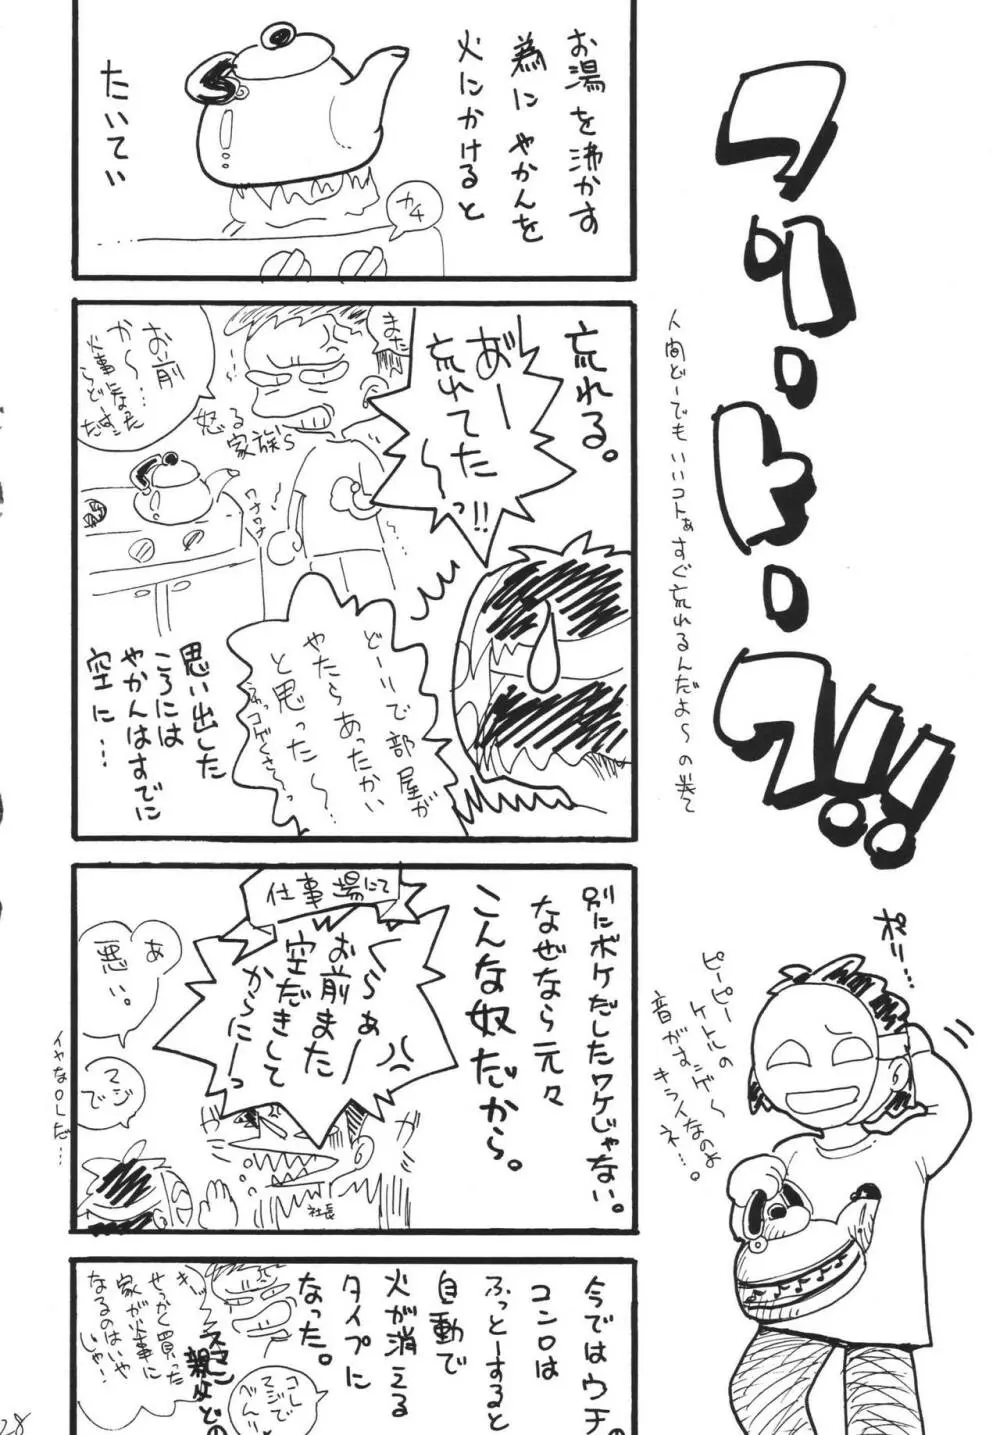 フリートーク!!
人間どーでもいいコトぁすぐ忘れるんだよ～の巻て
ポリ…
ピーピー
ケトルの
音がすンゲ～
キライなのよ
ネ…。
お湯を沸かす
為に やかんを
火にかけると
たいてい
カチ
忘れる。
あ゛ー
忘れてた
～っ!!
また
お前
か～…
怒る
家族's
ワナワナ
どーりで部屋が
やたらあったかい
と思った～…
思い出した
ころには
やかんはすでに
空に…
別にボケだしたワケじゃない。
なぜなら元々
こんな奴だから。
仕事場にて
くらぁー
お前また
空だきして
からにーっ
あ
悪い。
マジで
イヤなOLだ…
社長
今ではウチの
コンロは
ふっとーすると
自動で
火が消える
タイプに
なった。
せっかく買った
家が火事に
なるのはいや
じゃ!
スマン
コレ
マジで
べんり
28